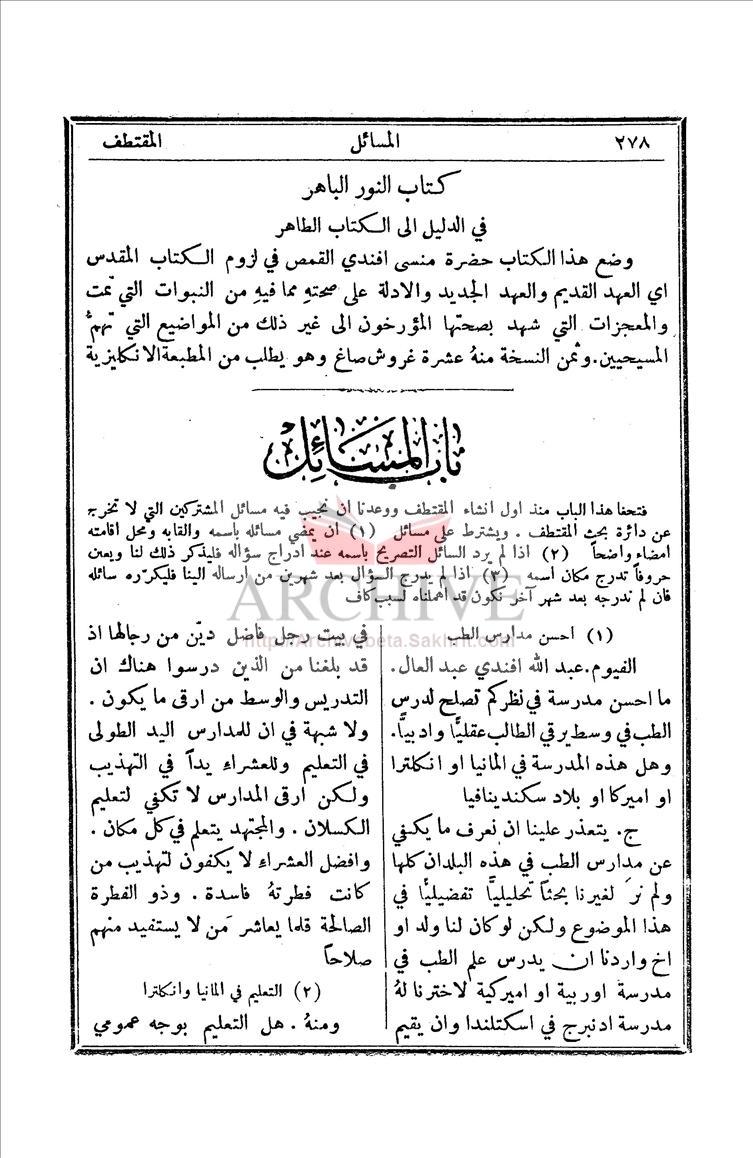 ٢٧٨
المسائل
المقتطف
كتاب النور الباهر
في الدليل الى الكتاب الطاهر
وضع هذا الكتاب حضرة منسى افندي القمص في لزوم الكتاب المقدس
اي العهد القديم والعهد الجديد والادلة على صحته مما فيه من النبوات التي تمت
والمعجزات التي شهد بصحتها المؤرخون الى غير ذلك من المواضيع التي تهمُّ
المسيحيين. وثمن النسخة منهُ عشرة غروش صاغ وهو يطلب من المطبعة الانكليزية
باب المسائل
فتحنا هذا الباب منذ اول انشاء المقتطف ووعدنا ان نجيب فيه مسائل المشتركين التي لا تخرج
عن دائرة بحث المقتطف . ويشترط على مسائل (١) ان يمضي مسائله باسمه والقابه ومحل اقامته
امضاء واضحاً (٢) اذا لم يرد السائل التصريح باسمه عند ادراج سؤاله فليذكر ذلك لنا ويعين
حروفاً تدرج مكان اسمه (٣) اذا لم يدرج السؤال بعد شهرين من ارساله الينا فليكرّره سائله
فان لم ندرجه بعد شهر آخر نكون قد أهملناه لسبب كاف
ARCHIVE
http://Archivebeta.Sakhrit.com
(١) احسن مدارس الطب
الفيوم. عبد الله افندي عبد العال.
ما احسن مدرسة في نظركم تصلح لدرس
الطب في وسط يرقي الطالب عقليًّا وادبيًّا.
وهل هذه المدرسة في المانيا او انكلترا
او اميركا او بلاد سكندينافيا
ج. يتعذر علينا ان نعرف ما يكفي
عن مدارس الطب في هذه البلدان كلها
ولم نرَ لغيرنا بحثاً تحليليًّا تفضيليًّا في
هذا الموضوع ولكن لو كان لنا ولد او
اخ واردنا ان يدرس علم الطب في
مدرسة اوربية او اميركية لاخترنا لهُ
مدرسة ادنبرج في اسكتلندا وان يقيم
في بيت رجل فاضل ديّن من رجالها اذ
قد بلغنا من الذين درسوا هناك ان
التدريس والوسط من ارقى ما يكون .
ولا شبهة في ان للمدارس اليد الطولى
في التعليم وللعشراء يداً في التهذيب
ولكن ارقى المدارس لا تكفي لتعليم
الكسلان . والمجتهد يتعلم في كل مكان .
وافضل العشراء لا يكفون لتهذيب من
كانت فطرتهُ فاسدة . وذو الفطرة
الصالحة قلما يعاشر مَن لا يستفيد منهم
صلاحاً
(٢) التعليم في المانيا وانكلترا
ومنهُ . هل التعليم بوجه عمومي